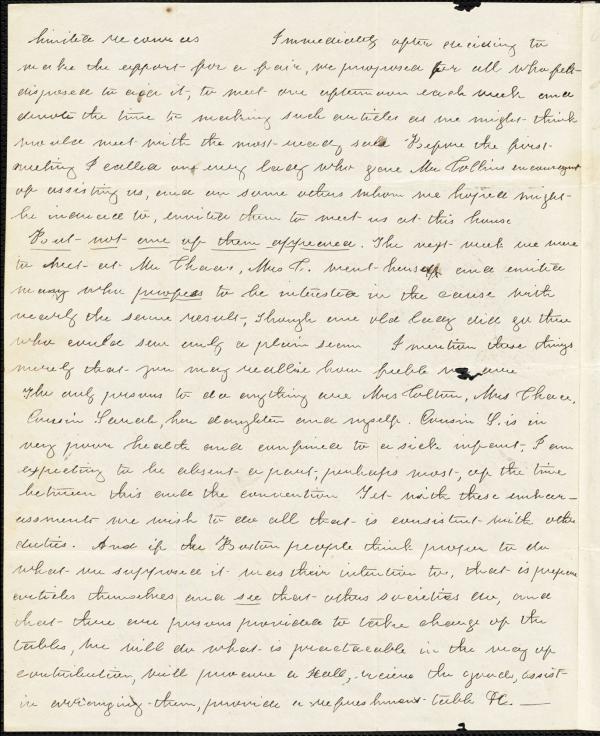 limited resources Immediately after deciding to
make the effort for a fair, we proposed for all who felt
disposed to aid it, to meet one afternoon each week and
devote the time to making such articles as we might think
would meet with the most ready sale Before the first
meeting I called on every lady who gave Mr Collins encouragement
of assisting us, and on some others whom we hoped might
be induced to, invited them to meet us at this house
But not one of them appeared. The next week we were
to meet at Mr Chace's, Mrs C. went herself and invited
many who profess to be interested in the cause with
nearly the same result, though one old lady did go there
who could sew only a plain seam I mention these things
merely that you may realise how feeble we are
The only persons to do anything are Mrs Colton, Mrs Chace,
Cousin Sarah, her daughter and myself. Cousin S. is in
very poor health and confined to a sick infant, I am
expecting to be absent a part, perhaps most, of the time
between this and the convention Yet with these embar-
assments we wish to do all that is consistent with other
duties. And if the Boston people think proper to do
what we supposed it was their intention to, that is prepare
articles themselves and see that other societies do, and
that there are persons provided to take charge of the
tables, we will do what is practacable in the way of
contribution, will procure a Hall, recieve the goods, assist
in arranging them, provide a refreshment table &c. —